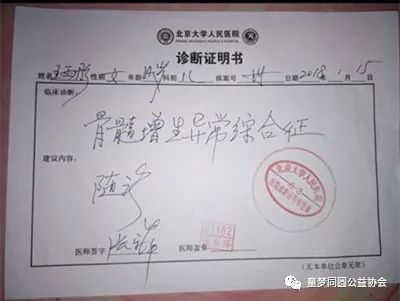 北京大学人民医院
PEKING UNIVERSITY PEOPLE'S HOSPITAL
诊断证明书
姓名 王雨彤 性别 女 年龄 岁 科别 儿 病案号 日期 2018. 1月 15
临床诊断:
骨髓增生异常综合征
建议内容:
随诊
北京大学人民医院
医师签字 医师盖章
(无本单位公章无效)
童梦同圆公益协会